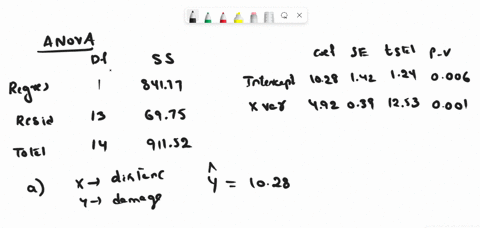 ANOVA
Df SS
Regres 1 841.77
Resid 13 69.75
Total 14 911.52
Coef SE tStat P-V
Intercept 10.28 1.42 1.24 0.006
X var 4.92 0.39 12.53 0.001
a) X → distance
Y → damage
Ŷ = 10.28